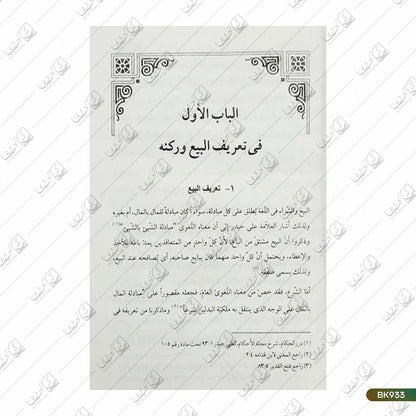 الباب الأول
فى تعريف البيع وركنه
١- تعريف البيع
البيع والشراء فى اللغة يُطلق على كل مبادلة، سواء أكان مبادلةً للمال بالمال، أم بغيره
ولذلك أشار العلامة على حيدر إلى أن معناه اللغوى "مبادلة الشىء بالشىء"(١)
وذكروا أنّ البيع مشتق من الباع، لأنّ كل واحد من المتعاقدين يمدّ باعه للأخذ
والإعطاء، ويحتمل أنّ كل واحد منهما كان يبايع صاحبه، أى يُصافحه عند البيع،
ولذلك يسمى صفقة(٢)
أمّا الشرع، فقد خصّ من معناه اللغوىّ العامّ، فجعله مقصوراً على "مبادلة المال
بالمال على الوجه الذى ينتقل به ملكيّة البدلين شرعاً"(٣) وماذكرنا من تعريفه فى
(١) درر الحكام، شرح مجلة الأحكام، لعلى حيدر ٩٣:١ تحت مادة رقم ١٠٥
(٢) راجع المغنى لابن قدامه ٢:٤
(٣) راجع فتح القدير
BK933